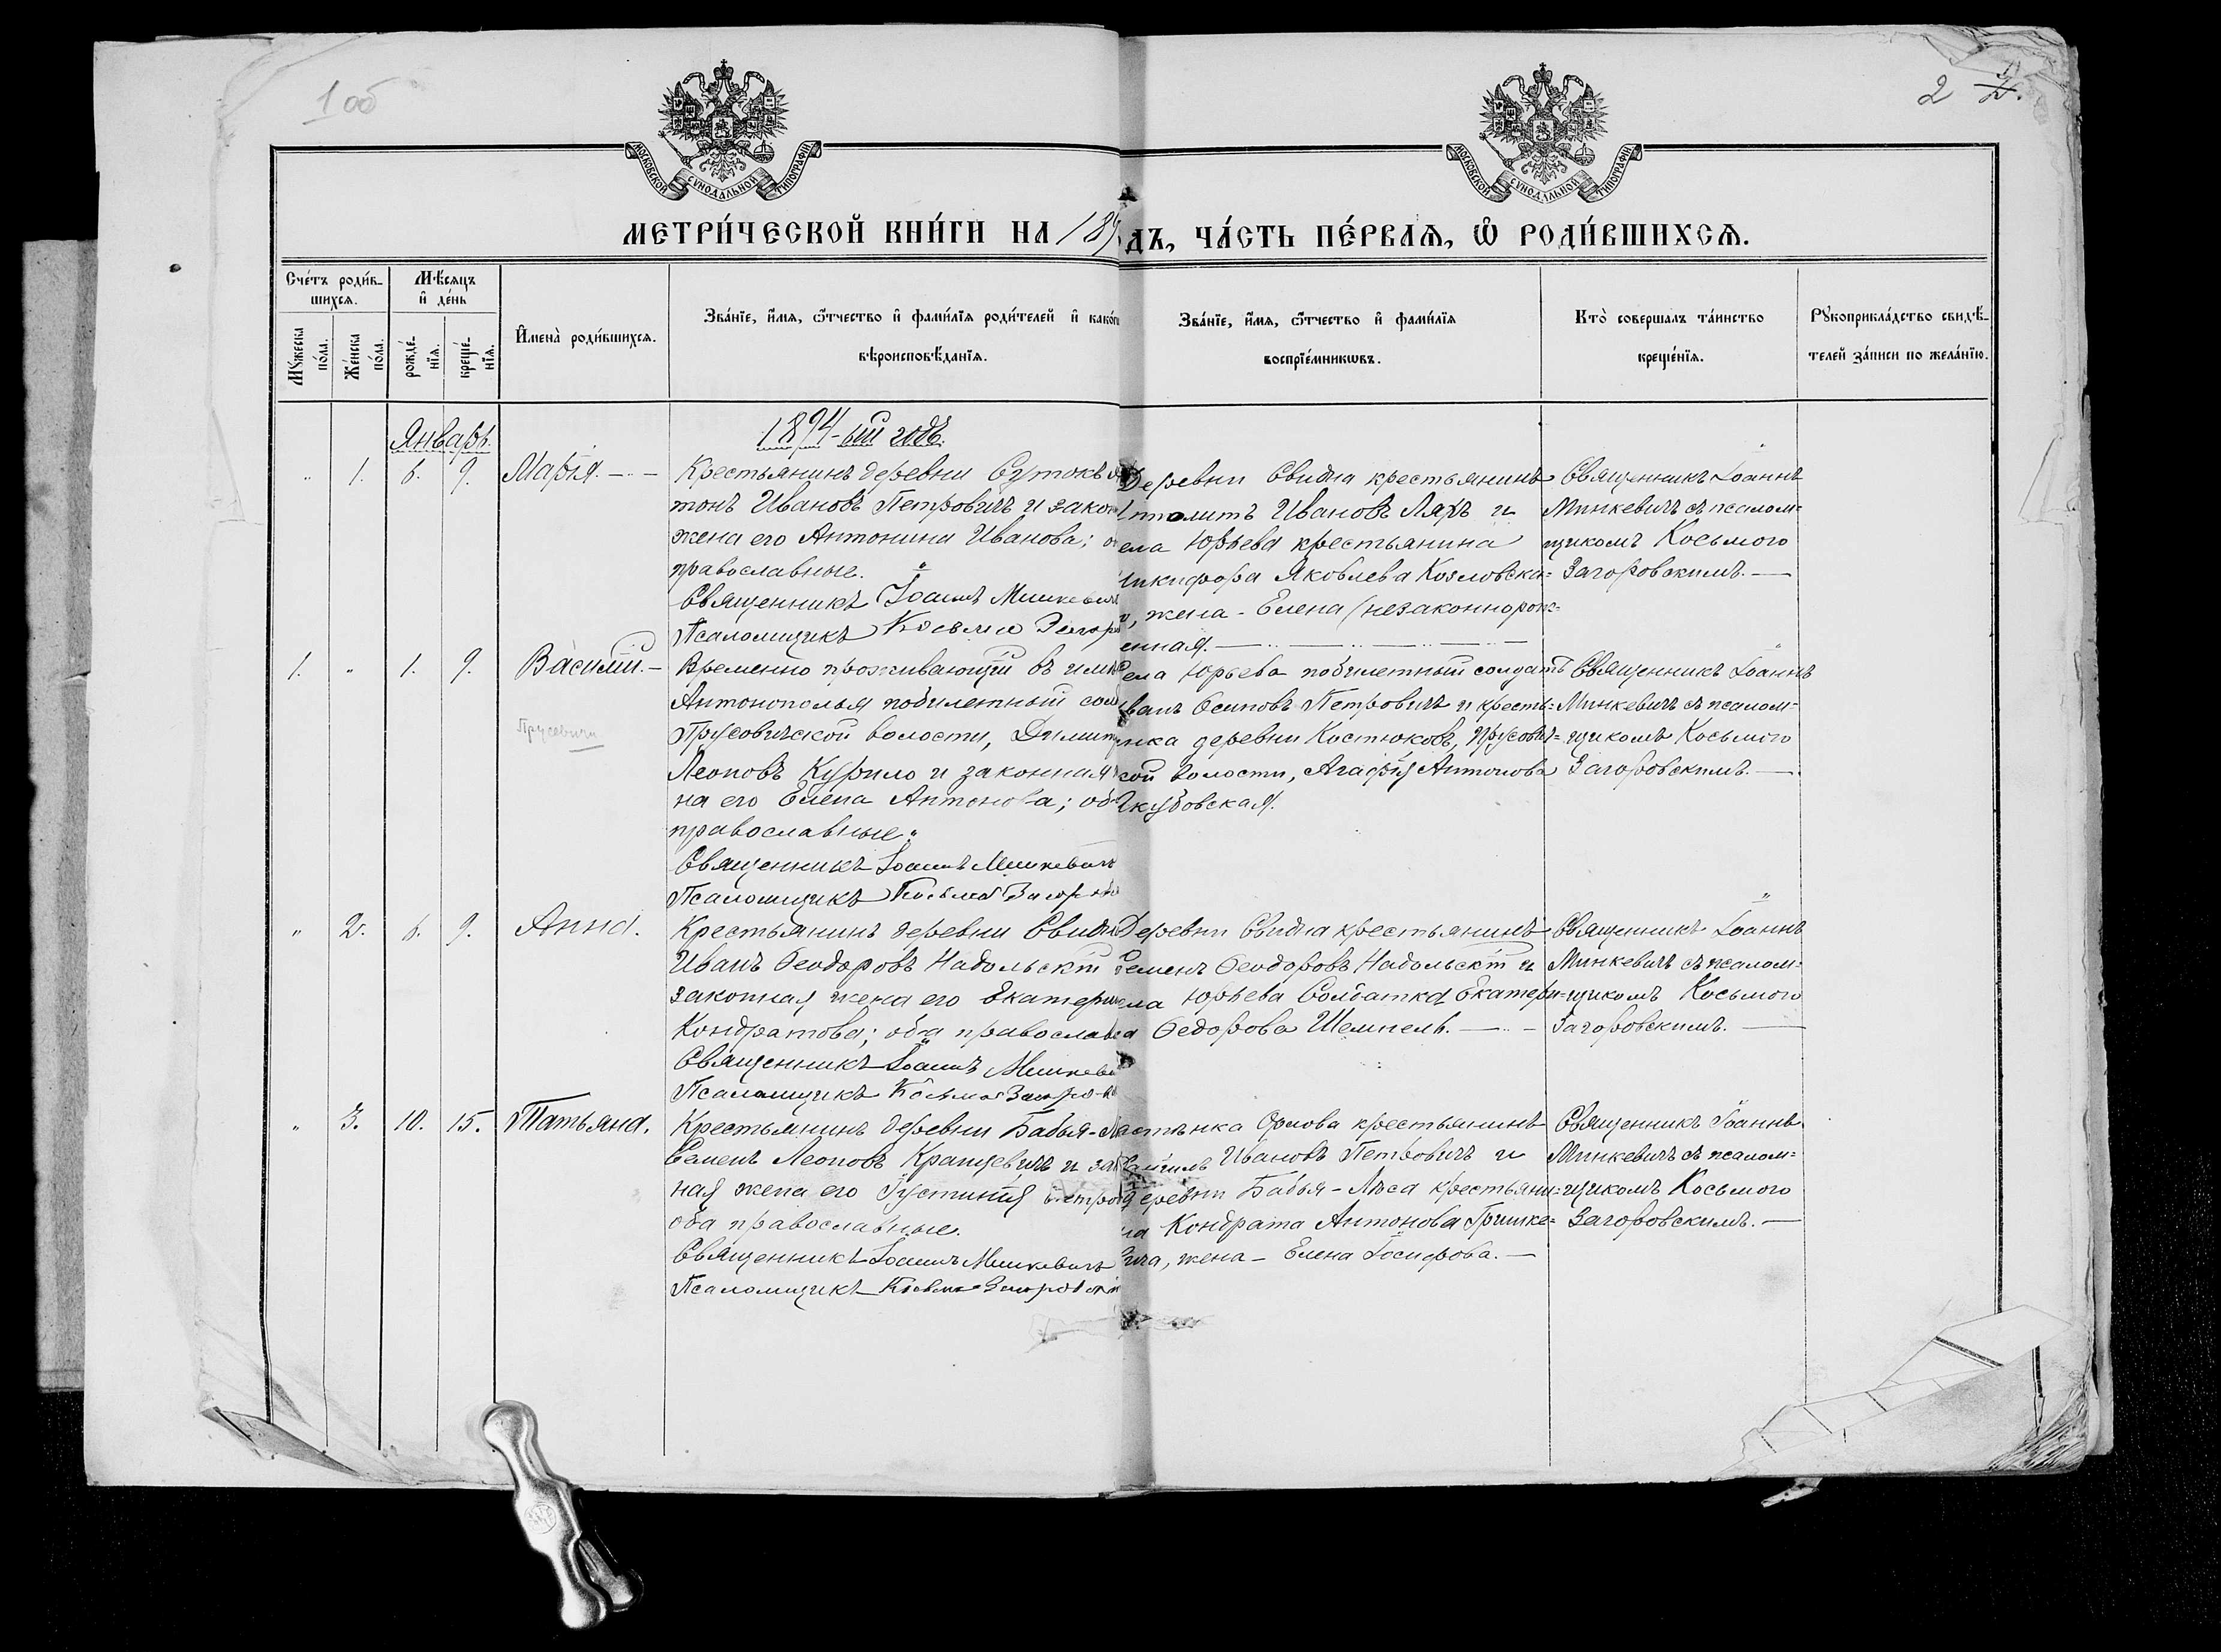 1 об
2
МОСКОВСКОЙ СУНОДАЛЬНОЙ ТИПОГРАФІИ
МОСКОВСКОЙ СУНОДАЛЬНОЙ ТИПОГРАФІИ
МЕТРИ́ЧЕСКОЙ КНИ́ГИ НА 189
дъ, ЧА́СТЬ ПЕ́РВАѦ, Ѡ РОДИ́ВШИХСѦ.
Сче́тъ роди́в-
шихсѧ.
Мꙋ́жеска по́ла.
Же́нска по́ла.
Мѣ́сѧцъ
и҆ де́нь
рожде́-
нїѧ.
креще́-
нїѧ.
И҆мена̀ роди́вшихсѧ.
Зва́нїе, и҆́мѧ, ѻ҆́тчество и҆ фами́лїѧ роди́телей и҆ како́гѡ
вѣроисповѣ́данїѧ.
Зва́нїе, и҆́мѧ, ѻ҆́тчество и҆ фами́лїѧ
воспрїе́мникѡвъ.
Кто̀ соверша́лъ та́инство
креще́нїѧ.
Рꙋкоприкла́дство свидѣ́-
телей за́писи по жела́нїю.
Январь.
1894-ый годъ.
" 1. 6. 9. Марія.
Крестьянинъ деревни Сутокъ
тонъ Ивановъ Петровичъ и закон
жена его Антонина Иванова;
православные.
Священникъ Іоаннъ Минкевичъ
Псаломщикъ Косьма Загоров
Деревни Свидна крестьянинъ
пполитъ Ивановъ Ляхъ и
ела Юрьева крестьянина
икифора Яковлева Козловска=
, жена - Елена (незаконнорож=
енная.
Священникъ Іоаннъ
Минкевичъ съ псалом=
щикомъ Косьмою
Загоровскимъ.
1. " 1. 9. Василій.
Прусевичи
Временно проживающій въ имѣ
Антонополья побилетный сол
Прусовичской волости, Димит
Леоновъ Курило и законная
на его Елена Антонова; об
православные.
Священникъ Іоаннъ Минкевичъ
Псаломщикъ Косьма Загоров
ела Юрьева побилетный солдатъ
ванъ Осиповъ Петровичъ и кресть=
нка деревни Костюковъ, Прусович=
кой волости, Агафія Антонова
Якубовская.
Священникъ Іоаннъ
Минкевичъ съ псалом=
щикомъ Косьмою
Загоровскимъ.
" 2. 6. 9. Анна.
Крестьянинъ деревни Свидн
Иванъ Ѳеодоровъ Надольскій
законная жена его Екатери
Кондратова; оба православ
Священникъ Іоаннъ Минкеви
Псаломщикъ Косьма Загоров
Деревни Свидна крестьянинъ
Семенъ Ѳеодоровъ Надольскій и
ела Юрьева Солдатка Екатери=
а Ѳедорова Шемпель.
Священникъ Іоаннъ
Минкевичъ съ псалом=
щикомъ Косьмою
Загоровскимъ.
" 3. 10. 15. Татьяна.
Крестьянинъ деревни Бабья-
Семенъ Леоновъ Кранцевичъ и зак
ная жена его Іустинія Петро
оба православные.
Священникъ Іоаннъ Минкевичъ
Псаломщикъ Косьма Загоровскій
астѣнка Орлова крестьянинъ
Ивановъ Петровичъ и
деревни Бабья-Лѣса крестьяни=
на Кондрата Антонова Гринке=
вича, жена - Елена Іосифова.
Священникъ Іоаннъ
Минкевичъ съ псалом=
щикомъ Косьмою
Загоровскимъ.